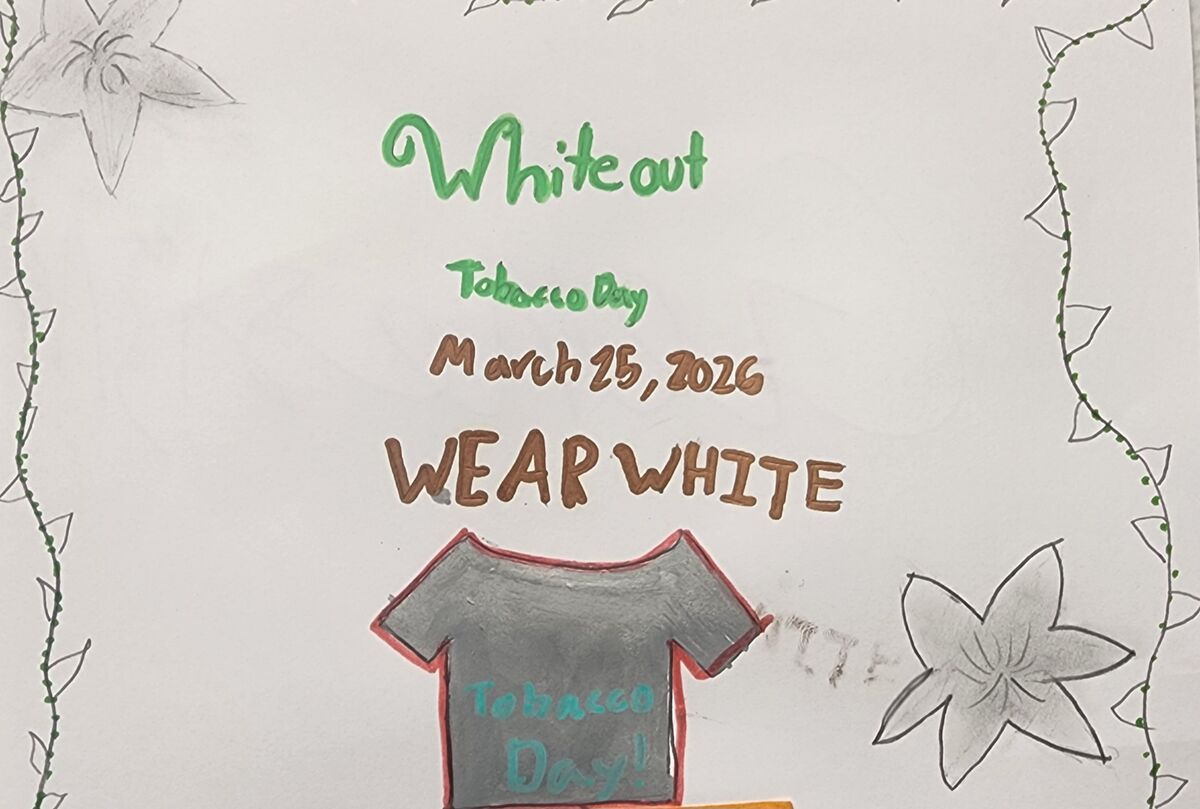 White out
Tobacco Day
March 25, 2026
WEAR WHITE
Tobacco
Day!